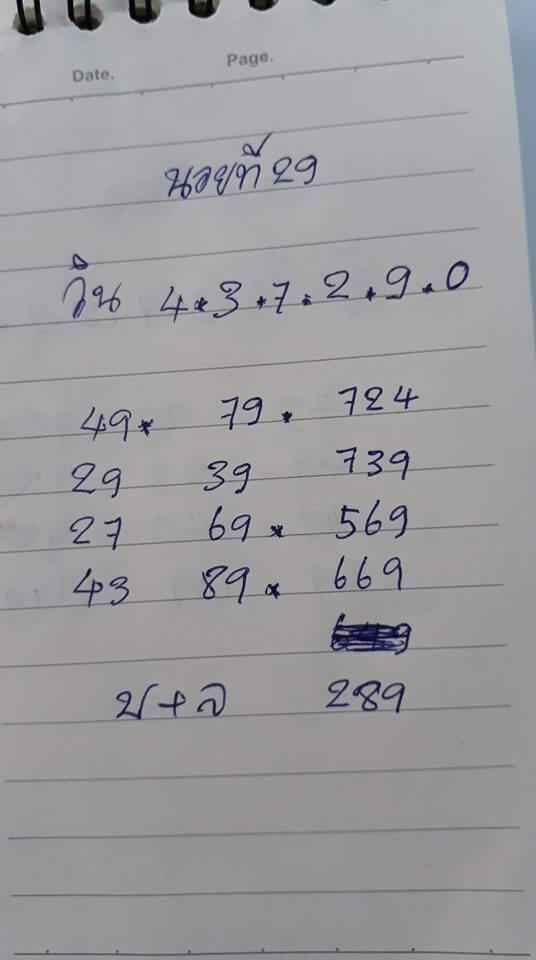 Date. Page.
นอยที่ 29
วิน 4.3.7.2.9.0
49* 79. 724
29 39 739
27 69* 569
43 89* 669
บ+ล 289